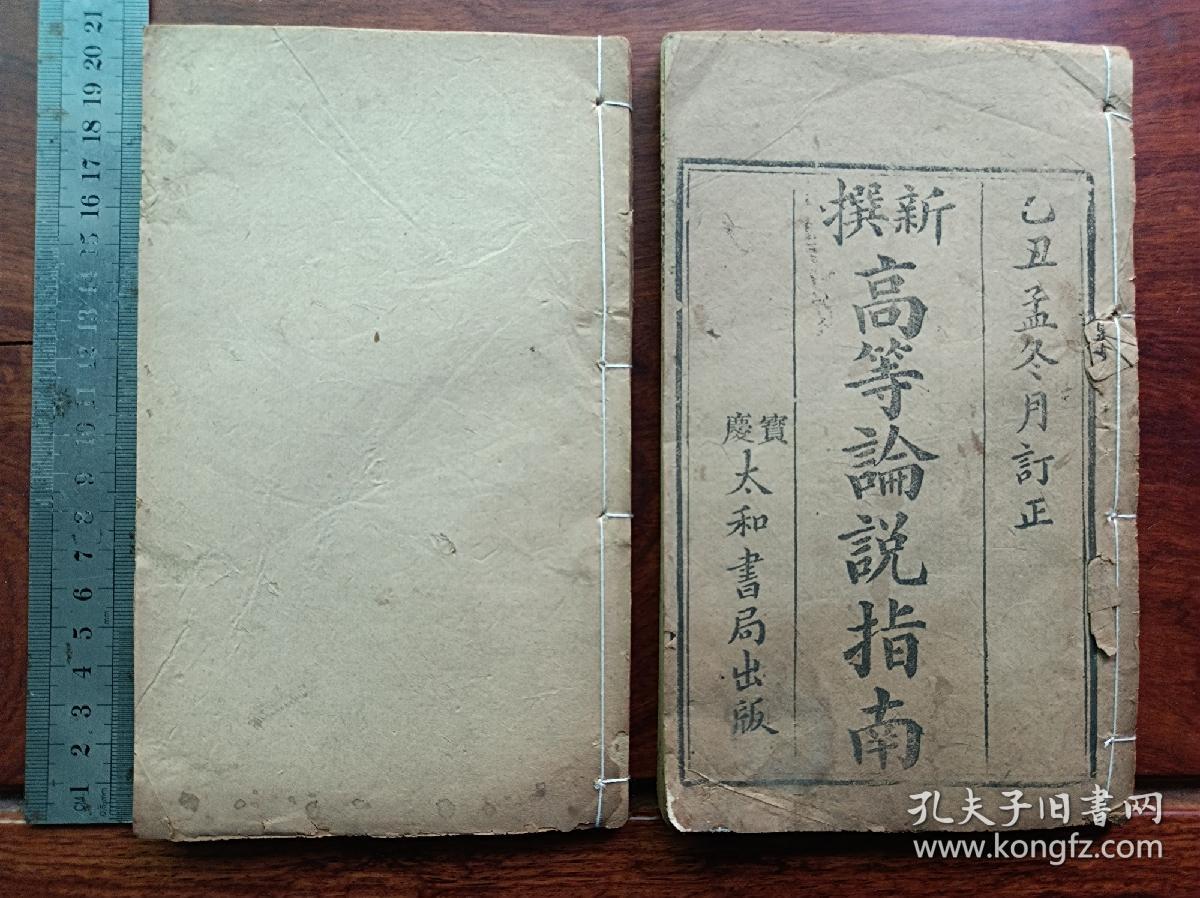 乙丑孟冬月訂正
新撰
高等論説指南
寶慶
太和書局出版
21
20
19
18
17
16
15
14
13
12
11
10
9
8
7
6
5
4
3
2
1
孔夫子旧書网
www.kongfz.com